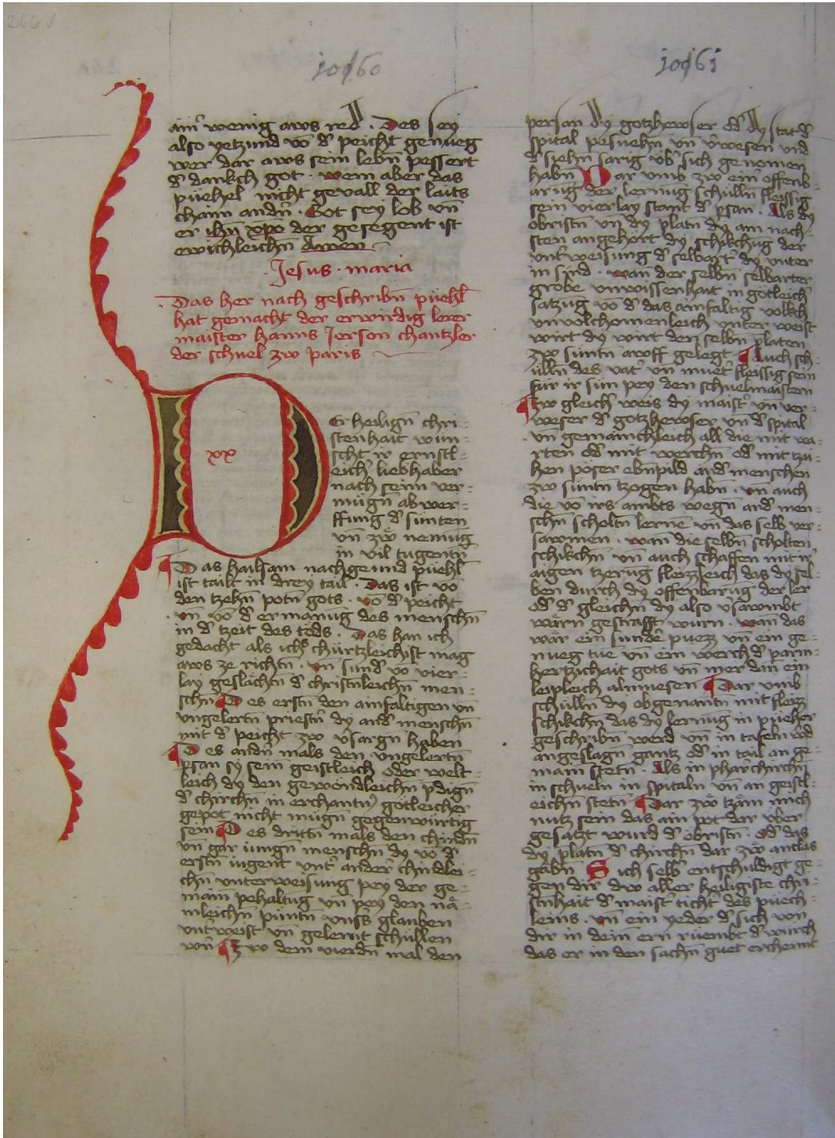 1060
ain wenig aws red . Des sey
also yetzund vo d peicht genueg
wer dar aws sein lebn pessert
d dankch got . wem aber das
püehel nicht gevall der laits
chain andn . Got sey lob vn
er ihu xpo der gesegent ist
ewichleichn Amen
Jesus . maria
Das her nach geschribn püehl
hat gemacht der erwirdig lerer
maister hanns Jerson chantzler
der schuel zw paris
D
xx
Er heilign chri
stenhait wun
scht ir ernstl
eich liebhaber
nach seim ver
mugn ab wer
ffung d sunten
vn zw nemug
in vil tugentn
Das hailsam nachgeund püehl
ist tailt in drey tail . Das ist vo
den tzehn potn gots . vo d peicht
vn vo d ermanug des menschn
in d tzeit des tods . Das han ich
gedacht als ichs chürtzleichist mag
aws ze richtn . vn sind vo vier
lay geslächtn d christnleichn men
schn Des erstn den ainfaltigen vn
vngelertn priestn dy and menschn
mit d peicht zw vsargn haben
Des andn mals den vngelertn
psan sy sein geistleich oder welt
leich dy den gewondleichn pdign
d chirchn in erchantn gotleicher
gepot nicht mügn gegenwürtig
sein Des drittn mals den chindn
vn gar iungn menschn dy vo d
erstn iugent vnt ander chindlei
chn vnterweisung pey der ge
main pehaltug vn pey den nä
mleichn püntn vnss glauben
vntweist vn gelernt schullen
wn Zw dem vierdn mal den
1061
person dy gotzhewser od dy stat d
spital pesuehn vn vwesen vnd
d siehn sarig vb sich genomen
habn Dar umb zw ein offenb
arug der lernug schulln fleissig
sein vierlay stant d psan . Als dy
obristn vn dy platn dy am nach
sten angehört dy schikchug der
vntweisung d selbart dy vnter
in sind . wan der selbn selbarter
grobe vnwissenhait in gotleich
satzug vo d das ainfaltig volkch
vnvolchomenleich vnter weist
wirt dy wirt den selbn platen
zw suntn awff gelegt Auch sch
ülln des vat vn muet fleissig sein
für ir sun pey den schuelmaistern
Zw gleich weis dy maist vn ver
weser d gotzhewser vn d spital
vn gemainchleich all die mit wa
rten od mit werchn od mit tzai
hen poser ebnpild and menschen
zw suntn tzogen habn . vn auch
die vo irs ambts wegn and men
schn scholtn lerne vn das selb ver
sawmen . wan die selbn scholten
schikchn vn auch schaffen mit ir
aigen tzerug fleizleich das dy sel
ben durch dy offenbarug der ler
od d gleichn dy also vsawmbt
warn gestrafft wurn . wan das
wär ein sunde puezz vn ein ge
nueg tue vn ein werch d parm
hertzichait gots vn mer dan ein
leipleich almuesen Dar vmb
schulln dy obgenantn mit fleizz
schikchn das dy lernug in püeher
geschribn werd vn in tafeln wd
angeslagn gantz od in tail an ge
main stetn . Als in pharchirchn
in schueln in spitaln vn an geistl
eichn stetn Dar zw tzäm mich
nutz sein das ain pot dar vber
gesatzt wurd d obristn . od das
dy platn d chirchn dar zw antlas
gabn Sich selb entschuldigt ge
gen dir dw aller heiligiste chri
stnhait d maist ticht des püech
leins . vn ein yeder d sich von
dir in dein ern rüembt d wurch
das er in den sachn guet erchennt